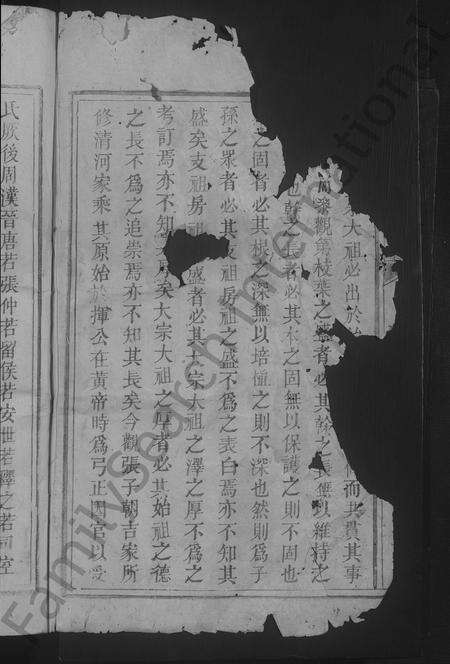 大祖必出於
而其貫其事
觀第枝葉之盛者必其榦之長無以維持之
也榦之長者必其本之固無以保護之則不固也
之固者必其根之深無以培植之則不深也然則爲子
孫之眾者必其支祖房祖之盛不爲之表白焉亦不知其
盛矣支祖房祖盛者必其大宗大祖之澤之厚不爲之
考訂焉亦不知矣大宗大祖之厚者必其始祖之德
之長不爲之追崇焉亦不知其長矣今觀張子朝吉家所
修清河家乘其原始於揮公在黃帝時爲弓正因官以受
氏厥後周漢晉唐若張仲若留侯若安世若釋之若司空
FamilySearch International